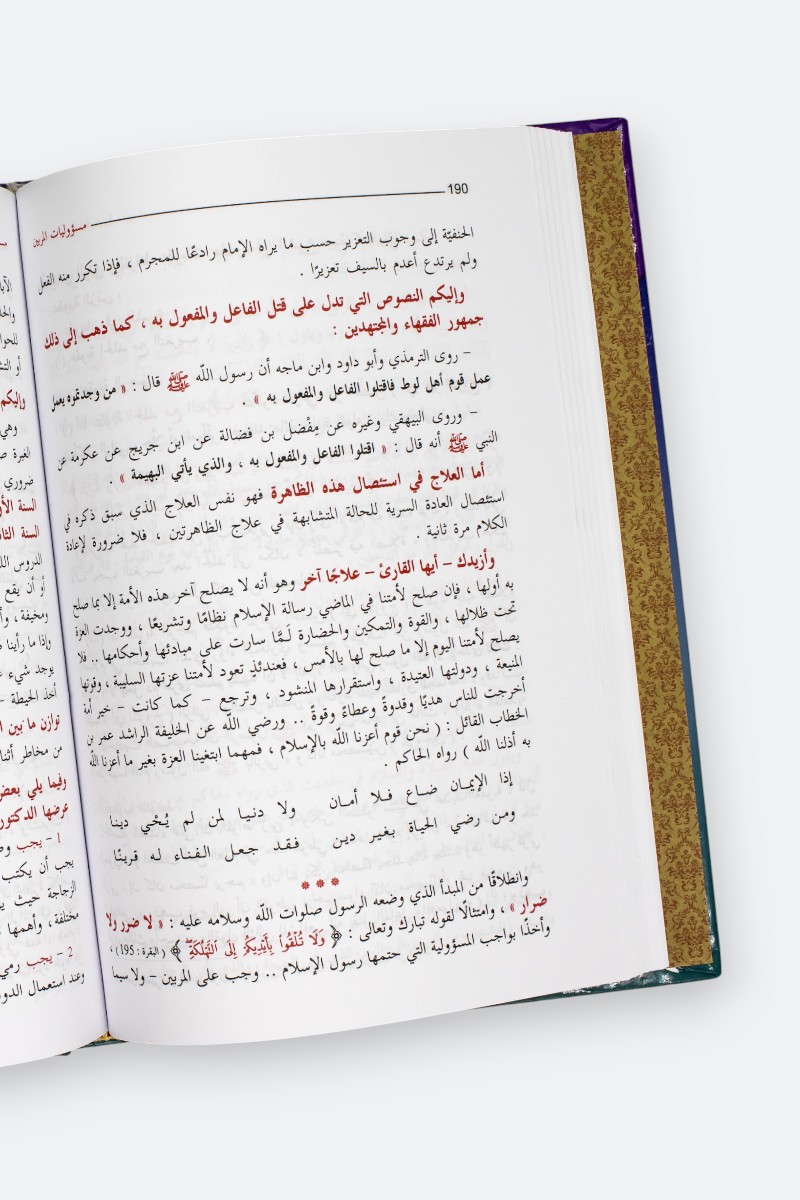 190
مسؤوليات المربين
الحنفيّة إلى وجوب التعزير حسب ما يراه الإمام رادعًا للمجرم ، فإذا تكرر منه الفعل
ولم يرتدع أعدم بالسيف تعزيرًا .
وإليكم النصوص التي تدل على قتل الفاعل والمفعول به ، كما ذهب إلى ذلك
جمهور الفقهاء والمجتهدين :
– روى الترمذي وأبو داود وابن ماجه أن رسول اللّه ﷺ قال : « من وجدتموه يعمل
عمل قوم أهل لوط فاقتلوا الفاعل والمفعول به » .
– وروى البيهقي وغيره عن مِفْضل بن فضالة عن ابن جريج عن عكرمة عن
النبي ﷺ أنه قال : « اقتلوا الفاعل والمفعول به ، والذي يأتي البهيمة » .
أما العلاج في استئصال هذه الظاهرة فهو نفس العلاج الذي سبق ذكره في
استئصال العادة السرية للحالة المتشابهة في علاج الظاهرتين ، فلا ضرورة لإعادة
الكلام مرة ثانية .
وأزيدك – أيها القارئ – علاجًا آخر وهو أنه لا يصلح آخر هذه الأمة إلا بما صلح
به أولها ، فإن صلح لأمتنا في الماضي رسالة الإسلام نظامًا وتشريعًا ، ووجدت العزة
تحت ظلالها ، والقوة والتمكين والحضارة لَـمَّا سارت على مبادئها وأحكامها .. فلا
يصلح لأمتنا اليوم إلا ما صلح لها بالأمس ، فعندئذٍ تعود لأمتنا عزتها السليبة ، وقوتها
المنيعة ، ودولتها العتيدة ، واستقرارها المنشود ، وترجع – كما كانت – خير أمة
أخرجت للناس هديًا وقدوةً وعطاءً وقوةً .. ورضي اللّه عن الخليفة الراشد عمر بن
الخطاب القائل : ( نحن قوم أعزنا اللّه بالإسلام ، فمهما ابتغينا العزة بغير ما أعزنا اللّه
به أذلنا اللّه ) رواه الحاكم .
إذا الإيمـان ضـاع فـلا أمـان ولا دنيـا لمن لم يُحْـي دينـا
ومـن رضي الحياة بـغير ديـن فـقـد جعـل الـفنـاء لـه قرينًا
* * *
وانطلاقًا من المبدأ الذي وضعه الرسول صلوات اللّه وسلامه عليه : « لا ضرر ولا
ضرار » ، وامتثالًا لقوله تبارك وتعالى : ﴿ وَلَا تُلْقُوا۟ بِأَيْدِيكُمْ إِلَى ٱلتَّهْلُكَةِ ﴾ ( البقرة : 195 ) ،
وأخذًا بواجب المسؤولية التي حتمها رسول الإسلام .. وجب على المربين – ولا سيما
وإليكم
وهي
ضروري
السنة الأو
أو أن يقع
وإذا ما رأينا
يوجد شيء
أخذ الحيطة –
توازن ما بين
من مخاطر
وفيما يلي بعض
عرضها الدكتور
1 – يجب
يجب أن يكتب
الزجاجة حيث
مختلفة ، وأهمها
2 – يجب رمي
وعند استعمال